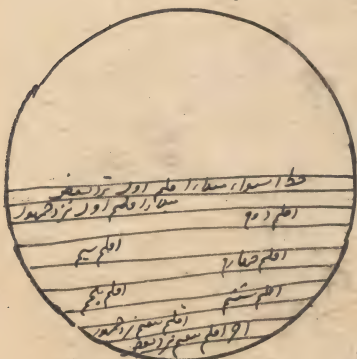 خط استواء مبداء اقلیم اول نزد بعضی
مبداء اقلیم اول نزد جمهور
اقلیم دوم
اقلیم سیم
اقلیم چهارم
اقلیم پنجم
اقلیم ششم
اقلیم هفتم نزد جمهور
آخر اقلیم هفتم نزد بعضی